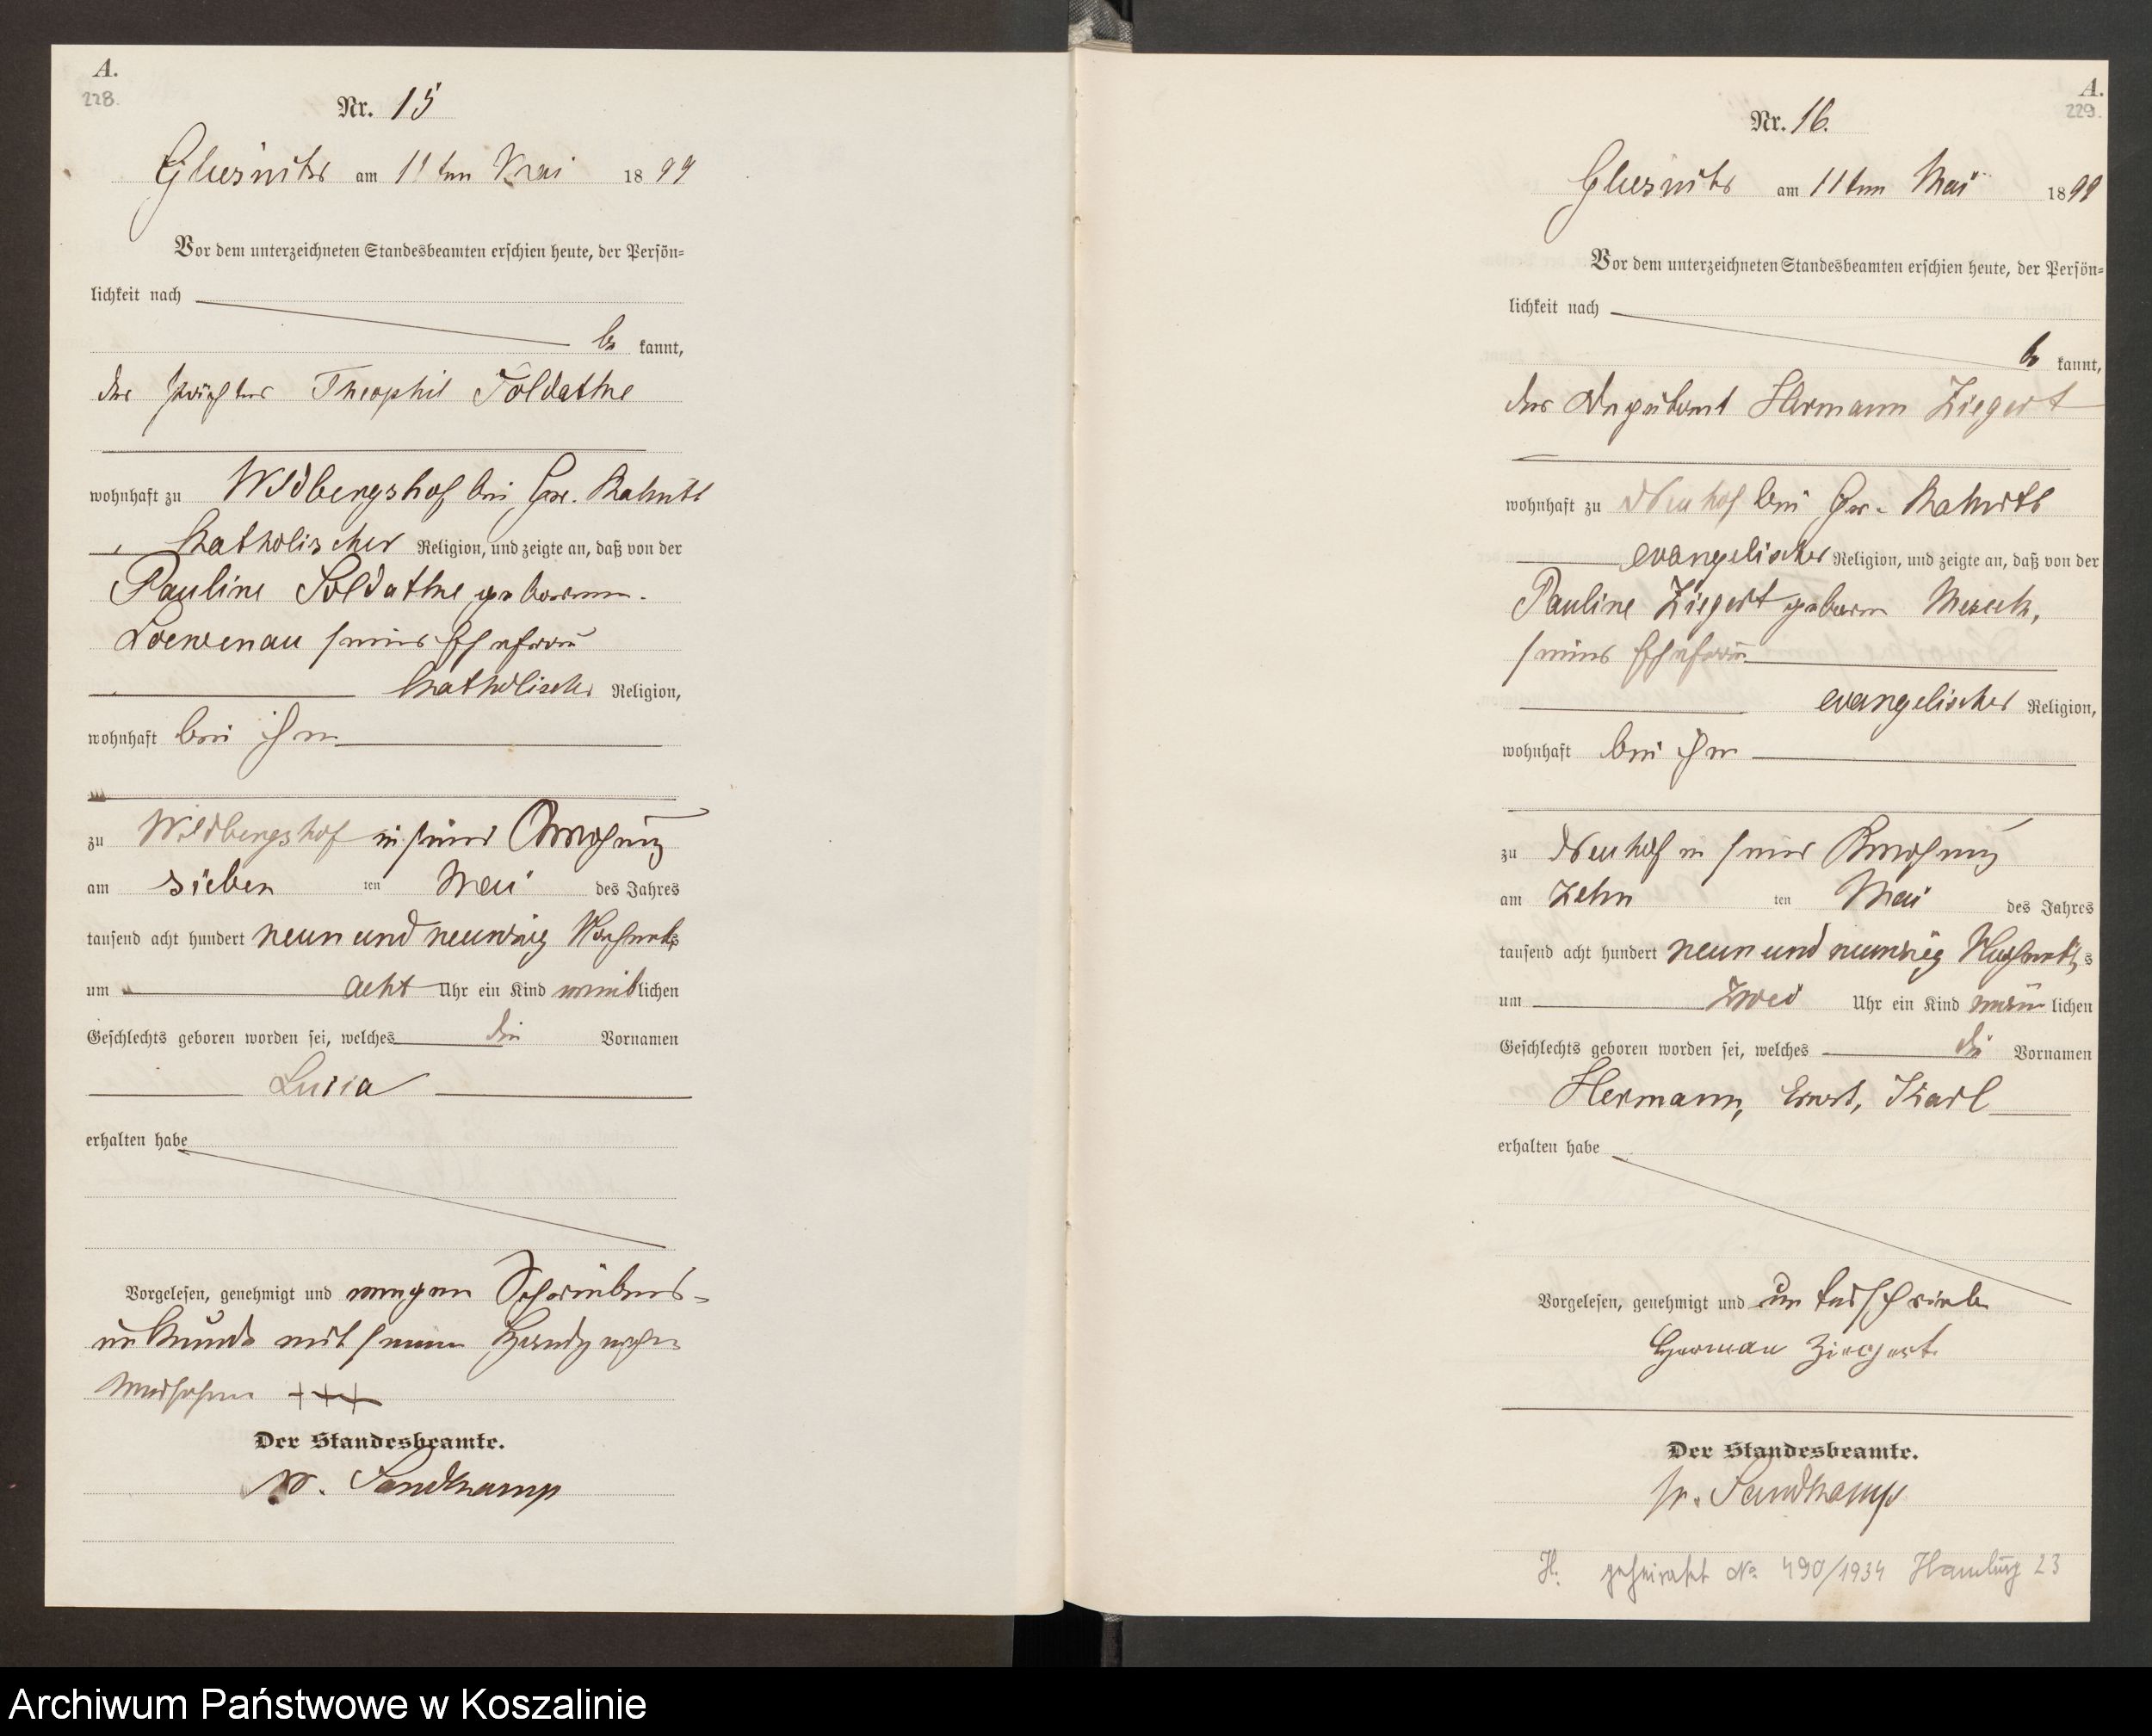 A.
228.
Nr. 15
Gluesnitz am 11ten Mai 1899
Vor dem unterzeichneten Standesbeamten erschien heute, der Persön=
lichkeit nach
be kannt,
der Pächter Theophil Soldathe
wohnhaft zu Wildbergshof bei Gr.
katholischer Religion, und zeigte an, daß von der
Pauline Soldathe geborenen
Loewenau seiner Ehefrau
katholischer Religion,
wohnhaft bei ihm
zu Wildbergshof in seiner Wohnung
am sieben ten Mai des Jahres
tausend acht hundert neun und neunzig Nachmittags
um acht Uhr ein Kind weiblichen
Geschlechts geboren worden sei, welches die Vornamen
Luisa
erhalten habe
Vorgelesen, genehmigt und wegen Schreibens-
unkunde mit seinem Handzeichen
versehen +++
Der Standesbeamte.
Sandkamp
A.
229.
Nr. 16.
Gluesnitz am 11ten Mai 1899
Vor dem unterzeichneten Standesbeamten erschien heute, der Persön=
lichkeit nach
be kannt,
der Deputant Hermann Ziegert
wohnhaft zu Neuhof bei Gr.
evangelischer Religion, und zeigte an, daß von der
Pauline Ziegert geboren
seiner Ehefrau
evangelischer Religion,
wohnhaft bei ihm
zu Neuhof in seiner Wohnung
am zehn ten Mai des Jahres
tausend acht hundert neun und neunzig Nachmittags
um zwei Uhr ein Kind männ lichen
Geschlechts geboren worden sei, welches die Vornamen
Hermann, Ernst, Karl
erhalten habe
Vorgelesen, genehmigt und unterschrieben
Herman Ziegert.
Der Standesbeamte.
Sandkamp
H. geheiratet No 490/1934 Hamburg 23
Archiwum Państwowe w Koszalinie